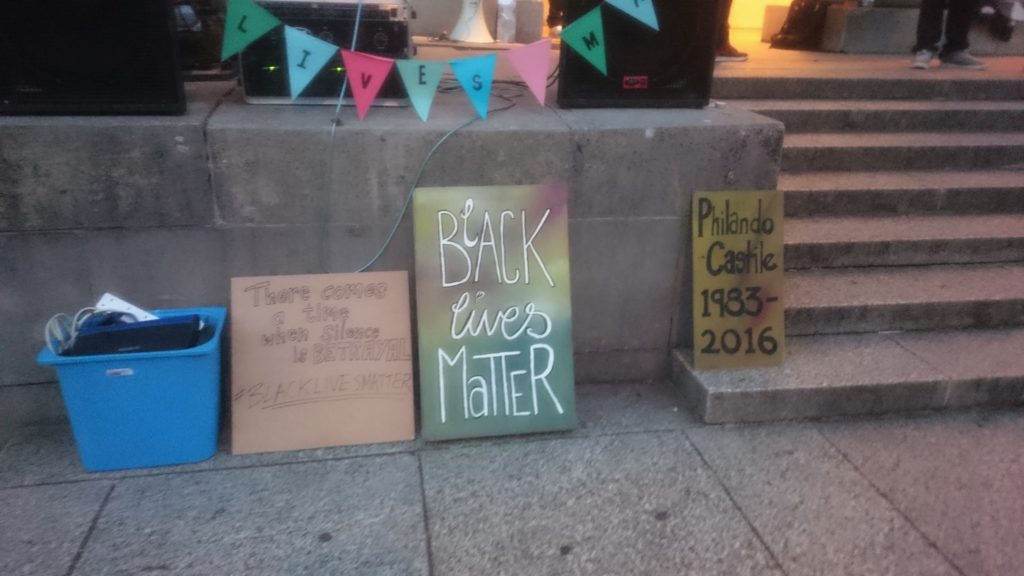 LIVES M
There comes
a time
when silence
is BETRAYAL
#BLACKLIVESMATTER
BLACK
lives
MATTER
Philando
Castile
1983-
2016